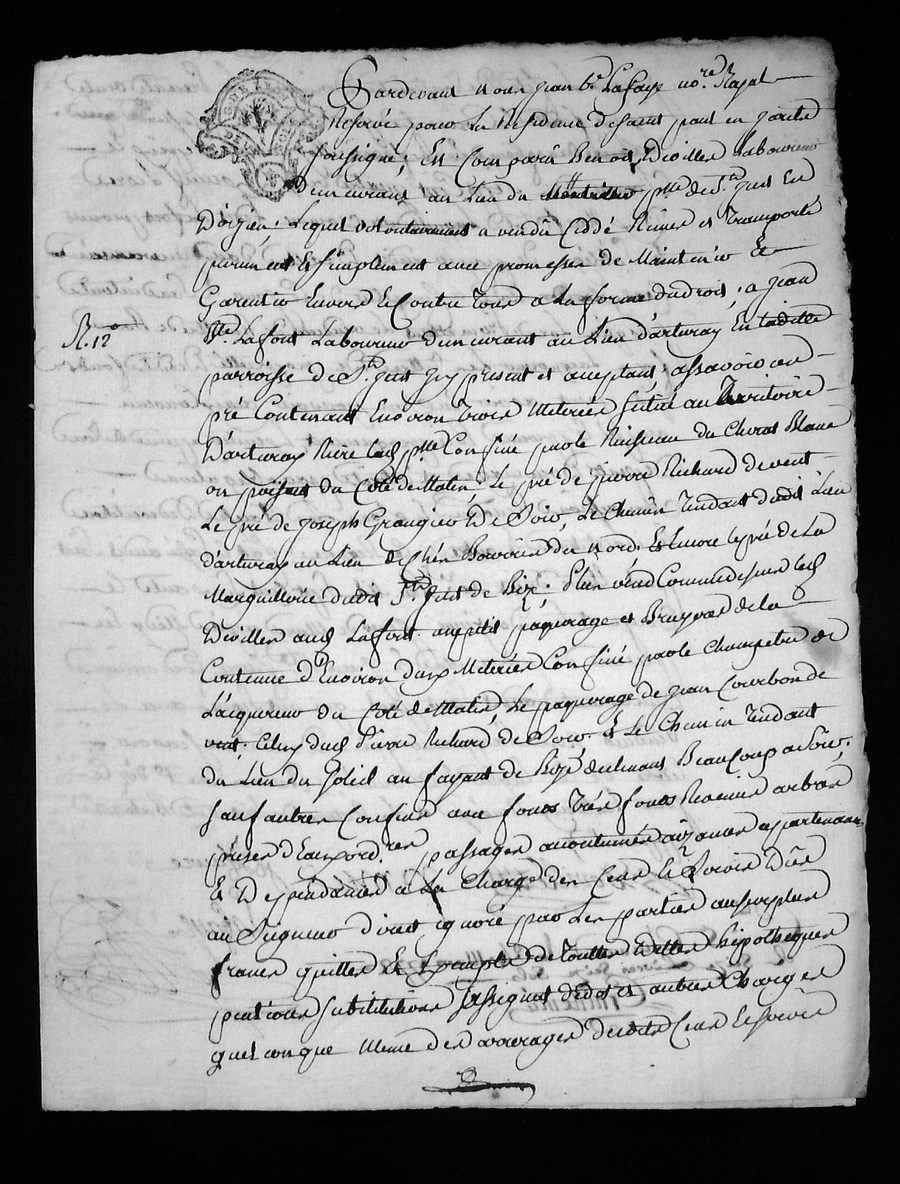 Pardevant Nous Jean Bte Lafaye nore Royal
Reservé pour La Residence de Saint paul en jarêts
soussigné; Est Comparû Benoit Deviller Laboureur
demeurant au Lieu du psse de St just En
D'oizieu: Lequel volontairement a vendû Cedé Remis et Transporté
purement Et simplement avec promesses de Maintenir Et
Garentir Envers Et Contre Tous a La forme du droit; a jean
Lafont Laboureur demeurant au Lieu d'arturay En Ladite
R. 12
parroisse de St just icy present et aceptant; assavoir un
pré Contenant Environ Trois Meterées situé au Territoire
D'arturay Riere lad. psse Confiné par le Ruisseau du Cherat Blanc
ou paisant du Coté de Matin, Le pré de pierre Richard de vent
Le pré de joseph Grangier De Soir, Le Chemin Tendant dudit Lieu
d'arturay au Lieu de chés Boiron du Nord. Et Encore le pré de La
Marguillerie dudit St just de Bize. Plus vend Comme dessus led.
Deviller aud. Lafont un petit pâquerage et Bruyere de la
Contenue d'Environ deux Meterées Confiné par le Champêtre de
L'aquereur du Coté de Matin, Le pâquerage de jean Courbon de
vent. Celuy dud. Pierre Richard de Soir. Et Le Chemin Tendant
du Lieu du Soleil au fayant de Bize declinant Beaucoup a Soir;
sauf autres Confins avec fonds Tres fonds Racines arbres
prises d'Eau ord.res passages acoutumés aizances apartenances
Et Dependances a La Charge des Cens Et Servis Dûs
au Seigneur direct ignoré par Les parties au surplus
francs quittes Et Exempts de Touttes Dettes hipotheques
pentions substitutions assignat de dot et autres Charges
quelconque Meme des arrerages desdits Cens Et servis